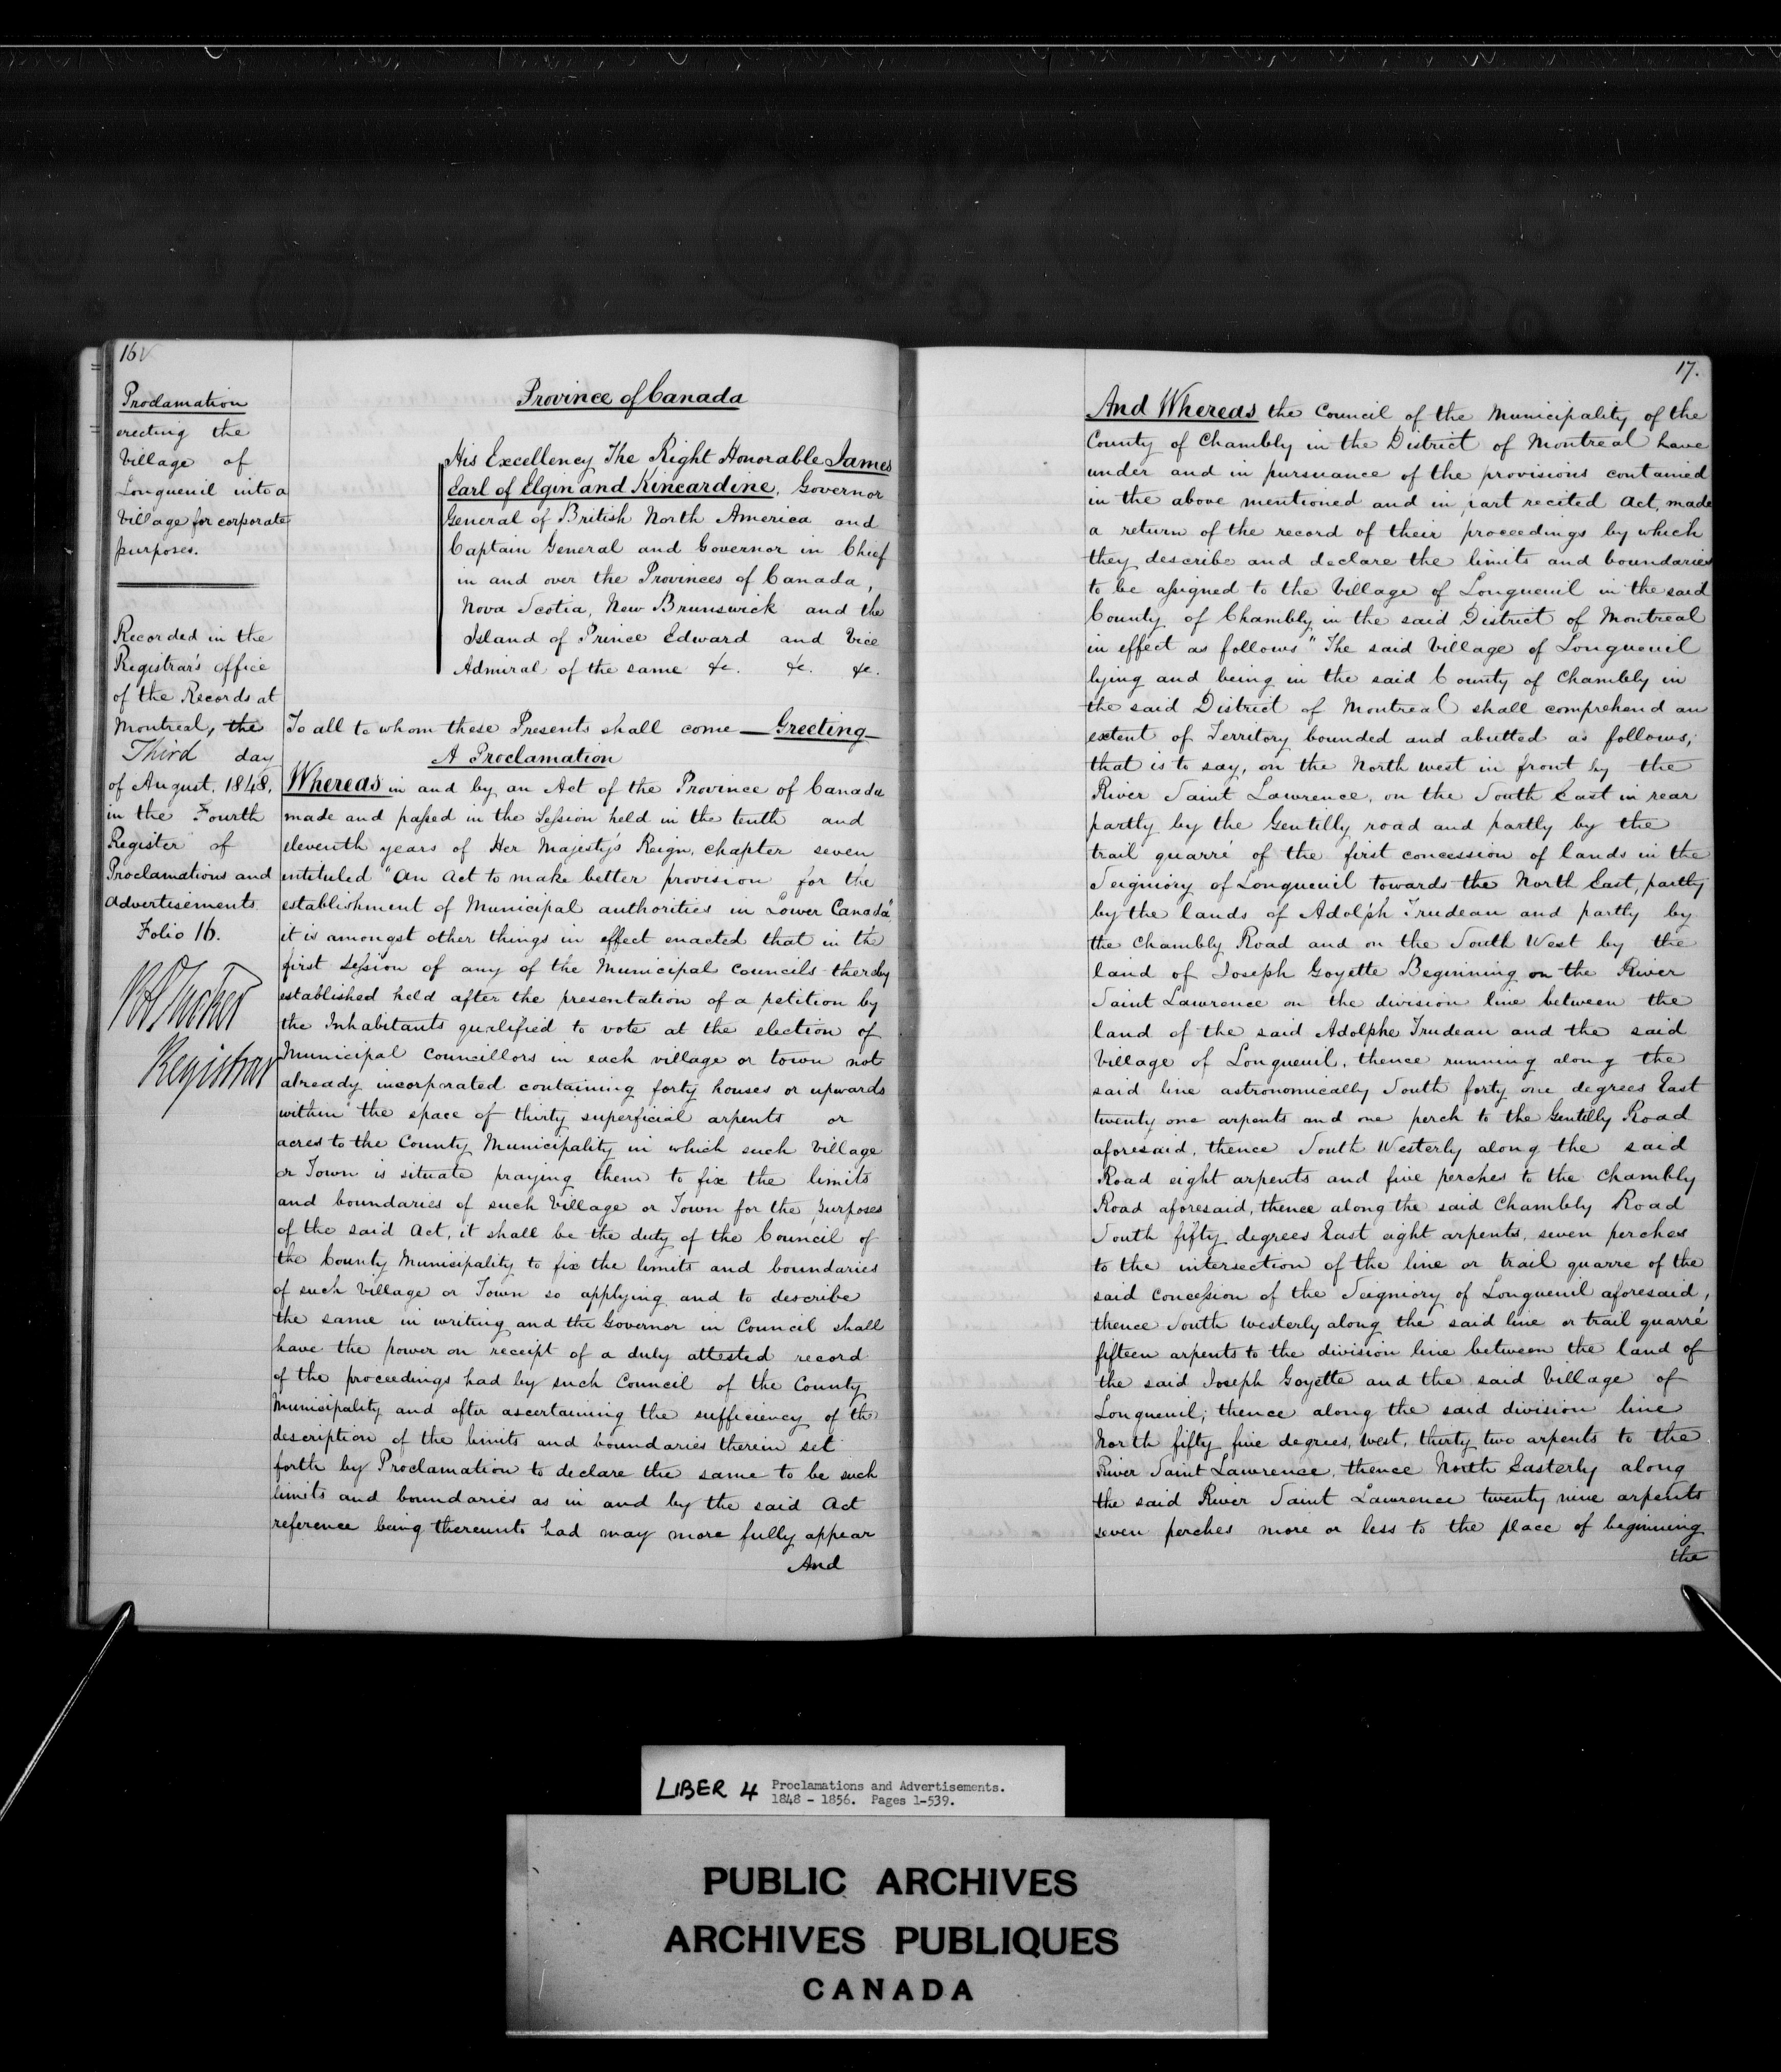 16
Proclamation
erecting the
Village of
Longueuil into a
Village for corporate
purposes.
Recorded in the
Registrar's office
of the Records at
Montreal, the
Third day
of August. 1848.
in the Fourth
Register of
Proclamations and
Advertisements
Folio 16.
Registrar
Province of Canada
His Excellency The Right Honorable James
Earl of Elgin and Kincardine, Governor
General of British North America and
Captain General and Governor in Chief
in and over the Provinces of Canada,
Nova Scotia, New Brunswick and the
Island of Prince Edward and Vice
Admiral of the same &c. &c. &c.
To all to whom these Presents shall come — Greeting —
A Proclamation
Whereas in and by an Act of the Province of Canada
made and passed in the Session held in the tenth and
eleventh years of Her Majesty's Reign, chapter seven
intituled "An Act to make better provision for the
establishment of Municipal authorities in Lower Canada"
it is amongst other things in effect enacted that in the
first Session of any of the Municipal Councils thereby
established held after the presentation of a petition by
the Inhabitants qualified to vote at the election of
Municipal Councillors in each village or town not
already incorporated containing forty houses or upwards
within the space of thirty superficial arpents or
acres to the County Municipality in which such Village
or Town is situate praying them to fix the limits
and boundaries of such Village or Town for the purposes
of the said Act, it shall be the duty of the Council of
the County Municipality to fix the limits and boundaries
of such Village or Town so applying and to describe
the same in writing and the Governor in Council shall
have the power on receipt of a duly attested record
of the proceedings had by such Council of the County
Municipality and after ascertaining the sufficiency of the
description of the limits and boundaries therein set
forth by Proclamation to declare the same to be such
limits and boundaries as in and by the said Act
reference being thereunto had may more fully appear
And
17.
And Whereas the Council of the Municipality of the
County of Chambly in the District of Montreal have
under and in pursuance of the provisions contained
in the above mentioned and in part recited Act, made
a return of the record of their proceedings by which
they describe and declare the limits and boundaries
to be assigned to the Village of Longueuil in the said
County of Chambly in the said District of Montreal
in effect as follows "The said Village of Longueuil
lying and being in the said County of Chambly in
the said District of Montreal shall comprehend an
extent of Territory bounded and abutted as follows;
that is to say, on the North west in front by the
River Saint Lawrence, on the South East in rear
partly by the Gentilly road and partly by the
trail quarré of the first concession of lands in the
Seigniory of Longueuil towards the North East, partly
by the lands of Adolph Trudeau and partly by
the Chambly Road and on the South West by the
land of Joseph Goyette Beginning on the River
Saint Lawrence on the division line between the
land of the said Adolphe Trudeau and the said
Village of Longueuil, thence running along the
said line astronomically South forty one degrees East
twenty one arpents and one perch to the Gentilly Road
aforesaid, thence South Westerly along the said
Road eight arpents and five perches to the Chambly
Road aforesaid, thence along the said Chambly Road
South fifty degrees East eight arpents, seven perches
to the intersection of the line or trail quarre of the
said Concession of the Seigniory of Longueuil aforesaid,
thence South Westerly along the said line or trail quarré
fifteen arpents to the division line between the land of
the said Joseph Goyette and the said Village of
Longueuil; thence along the said division line
North fifty five degrees, West, thirty two arpents to the
River Saint Lawrence, thence North Easterly along
the said River Saint Lawrence twenty nine arpents
seven perches more or less to the place of beginning
the
LIBER 4 Proclamations and Advertisements.
1848 - 1856. Pages 1-539.
PUBLIC ARCHIVES
ARCHIVES PUBLIQUES
CANADA